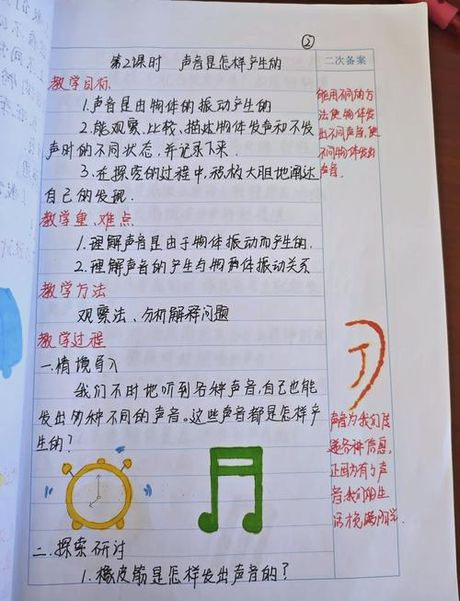 ②
第2课时 声音是怎样产生的
二次备案
教学目标
1.声音是由物体的振动产生的
2.能观察、比较、描述物体发声和不发
声时的不同状态，并记录下来.
3.在探究的过程中，积极大胆地阐述
自己的发现.
教学重、难点
1.理解声音是由于物体振动而产生的.
2.理解声音的产生与物体振动关系
教学方法
观察法、分析解释问题
教学过程
一.情境导入
我们不时地听到各种声音，自己也能
发出多种不同的声音。这些声音都是怎样产
生的？
二.探索研讨
1.橡皮筋是怎样发出声音的？
能用不同的方
法使物体发
出不同声音，使
不同物体发出
声音.
声音为我们传
递各种信息，
正因为有了声
音我们的生
活